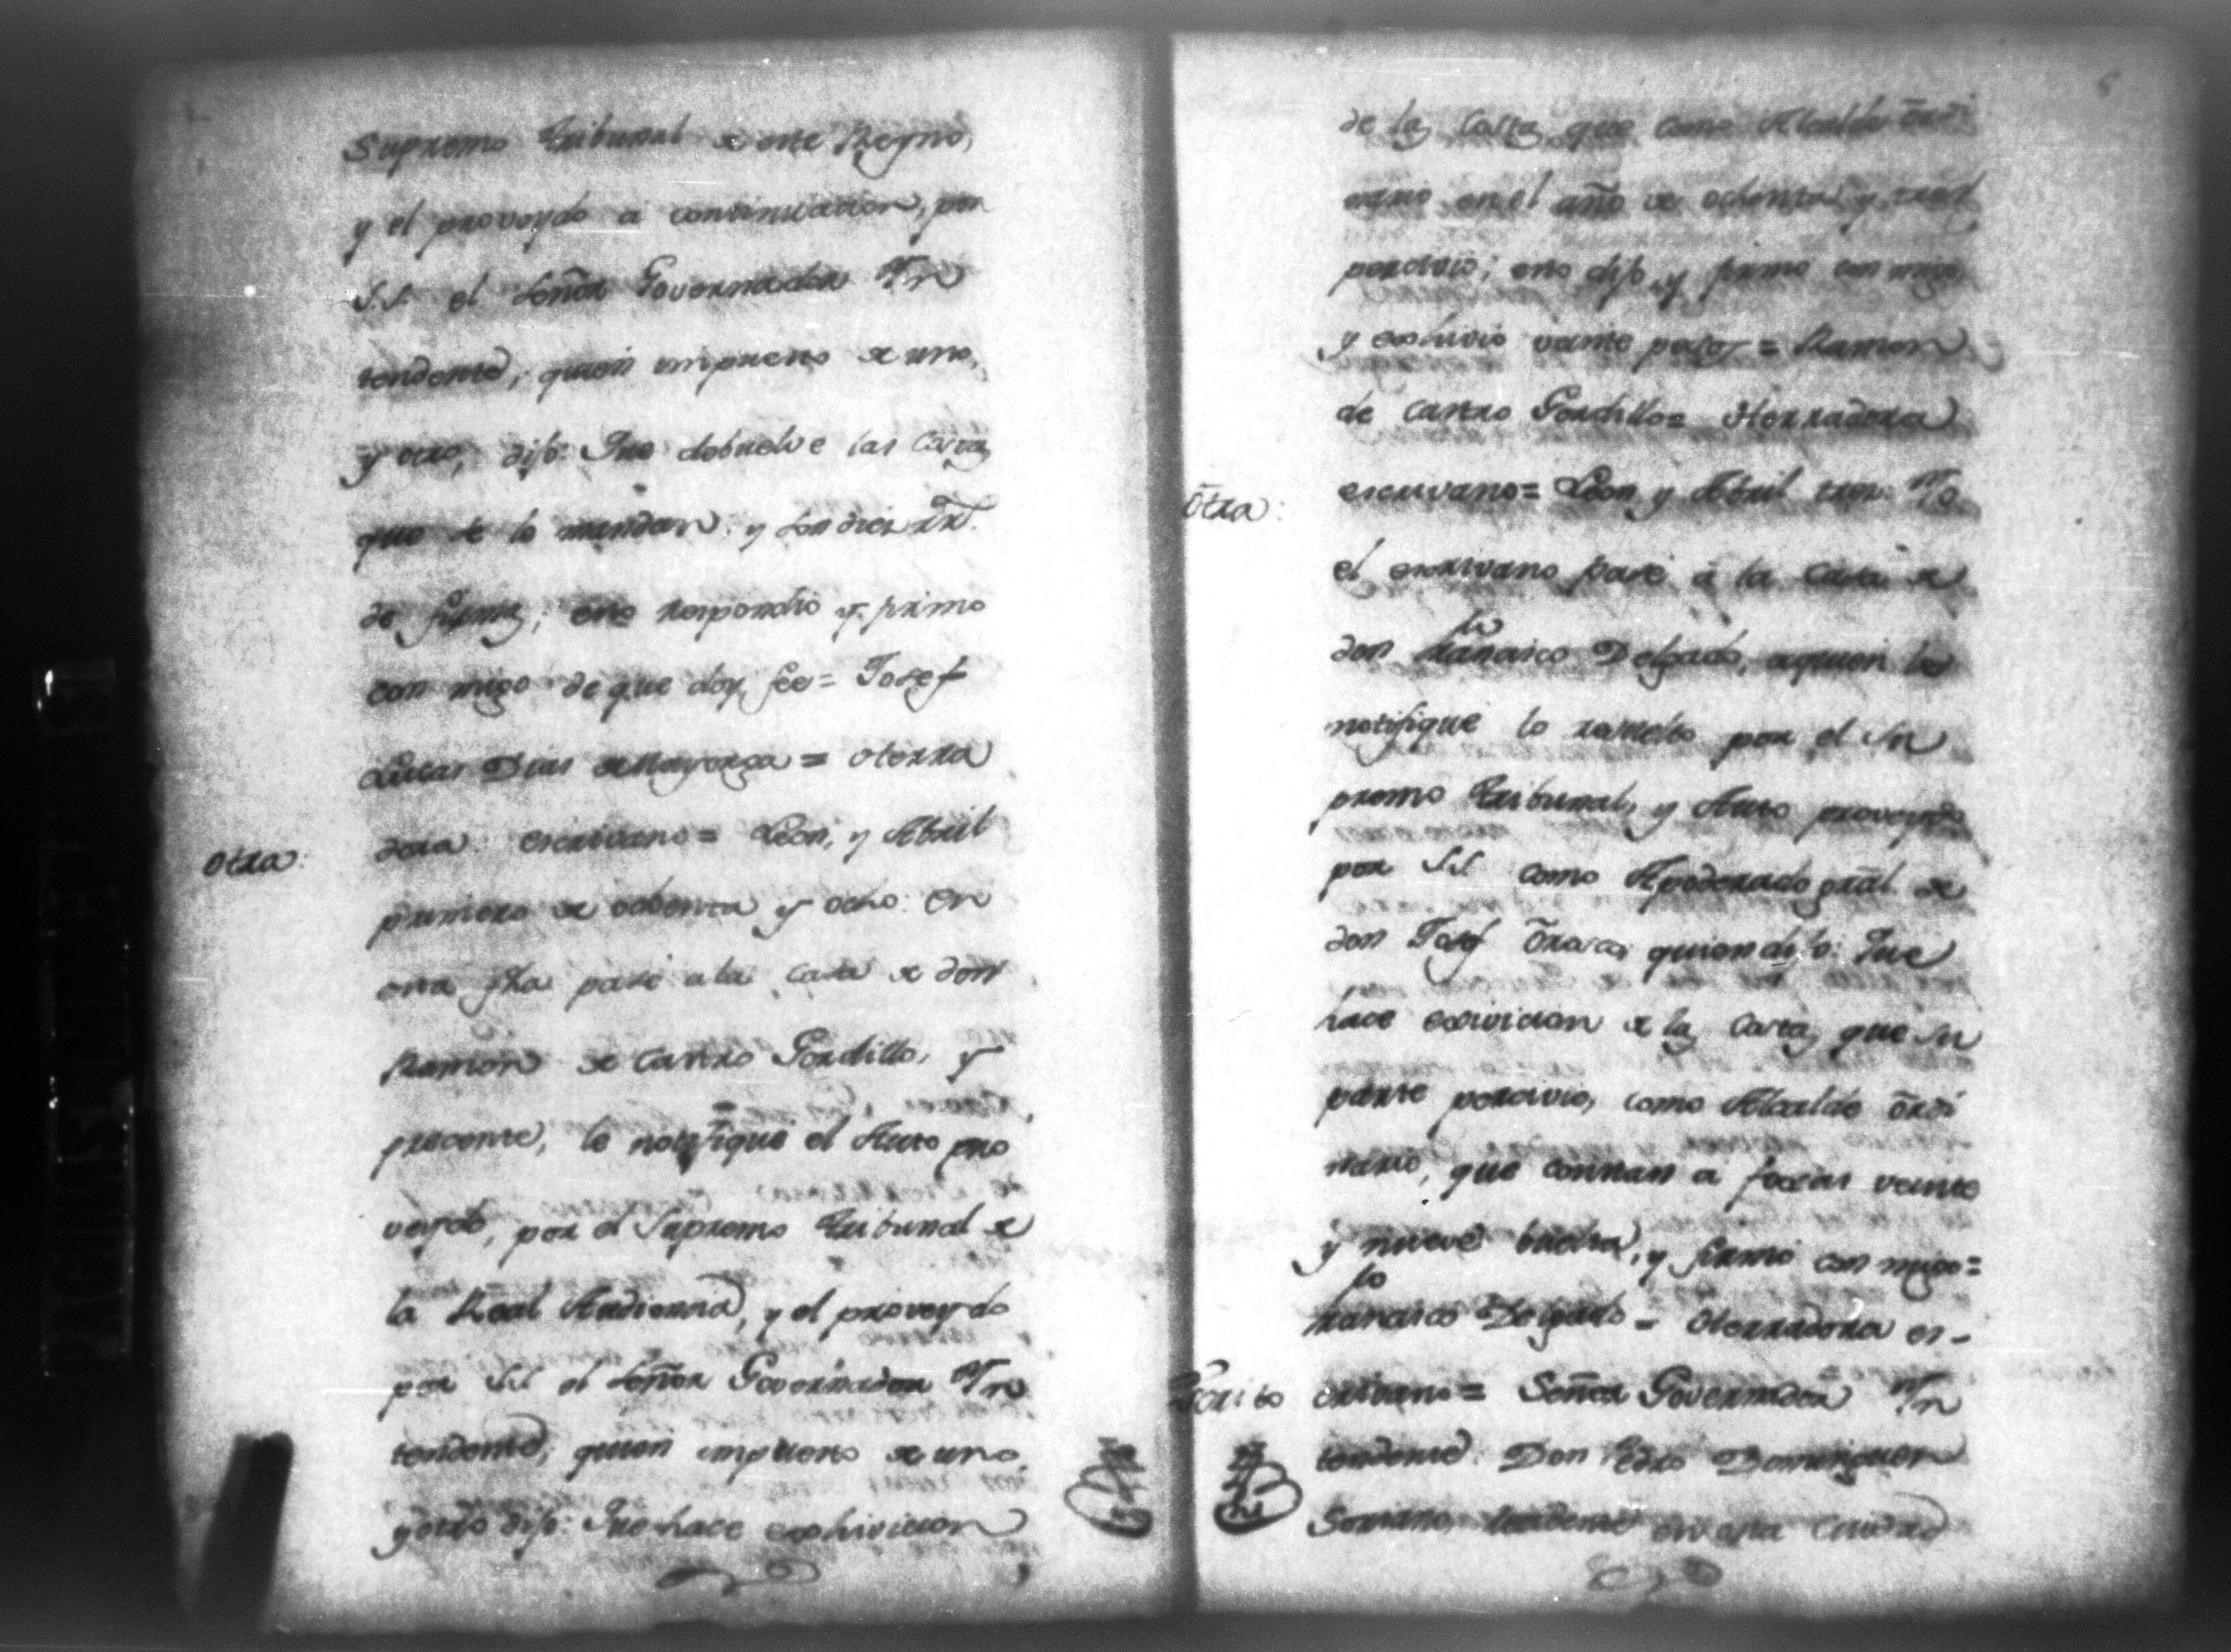 Supremo Tribunal de este Reyno,
y el proveydo a continuacion, por
S.S. el Señor Governador Yn
tendente, quien impuesto de uno,
y otro, dijo: Que debuelve las Costas
que se le mandan, y son diez rrs.
de firmas; esto respondio y firmo
con migo de que doy fee = Josef
Lucas Dias de Mayorga = Herra
Otra:
dora escrivano = Leon, y Abril
primero de ochenta y ocho: En
esta fha pasé a la casa de don
Ramon de Castro Gordillo, y
precente, le notifiqué el Auto pro
veydo, por el Supremo Tribunal de
la Real Audiencia, y el proveydo
por S.S. el Señor Governador Yn
tendente, quien impuesto de uno,
y otro dijo: Que hace exhivicion
de las Costas que como Alcalde Ordi
nario en el año de ochenta y tres
percivio; esto dijo y firmo con migo
y exhivio veinte pesos = Ramon
de Castro Gordillo = Herradora
Otra:
escrivano = Leon y Abril tres: Yo
el escrivano pasé á la casa de
don Francisco Delgado, a quien le
notifiqué lo resuelto por el Su
premo Tribunal, y Auto proveydo
por S.S. como Apoderado gral de
don Josef Orosco, quien dijo: Que
hace exivicion de las Costas que su
parte percivio, como Alcalde Ordi
nario, que constan a foxas veinte
y nueve buelta, y firmó con migo =
Francisco Delgado = Herradora es-
Escrito
crivano = Señor Governador Yn
tendente: Don Pedro Dominguez
Soriano, residente en esta Ciudad